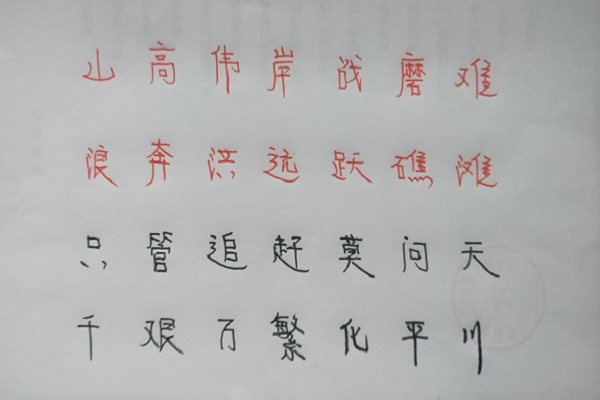 山高伟岸战磨难
浪奔洪远跃礁滩
只管追赶莫问天
千艰万繁化平川